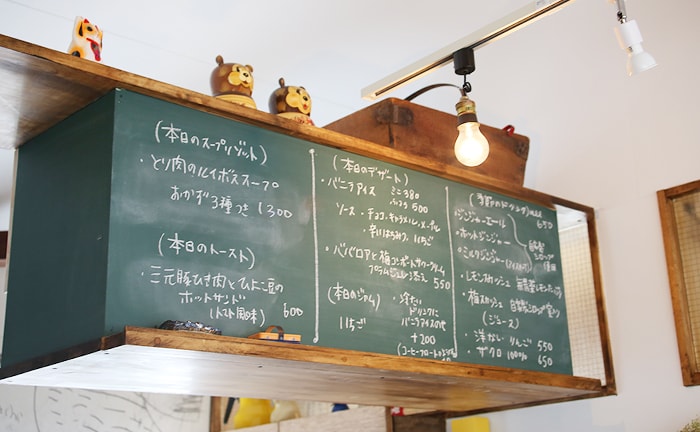 (本日のスープリゾット)
・とり肉のルイボススープ
おかず3種つき 1300
(本日のトースト)
・三元豚ひき肉とひよこ豆の
ホットサンド
(トマト風味) 600
(本日のデザート)
・バニラアイス ミニ 380
500
ソース・チョコ、キャラメル、メープル
いちご
・ババロアと梅コンポートサワークリーム
添え 550
(本日のジャム)
いちご
・冷たい
ドリンクに
バニラアイスのせ
+200
(コーヒーフロート
(季節のドリンク)
・ジンジャーエール 650
・ホットジンジャー
・ミルクジンジャー
自家製
シロップ
使用
・レモンスカッシュ
・梅スカッシュ 自家製シロップ
(ジュース)
・洋なし・りんご 550
・ザクロ 100% 650